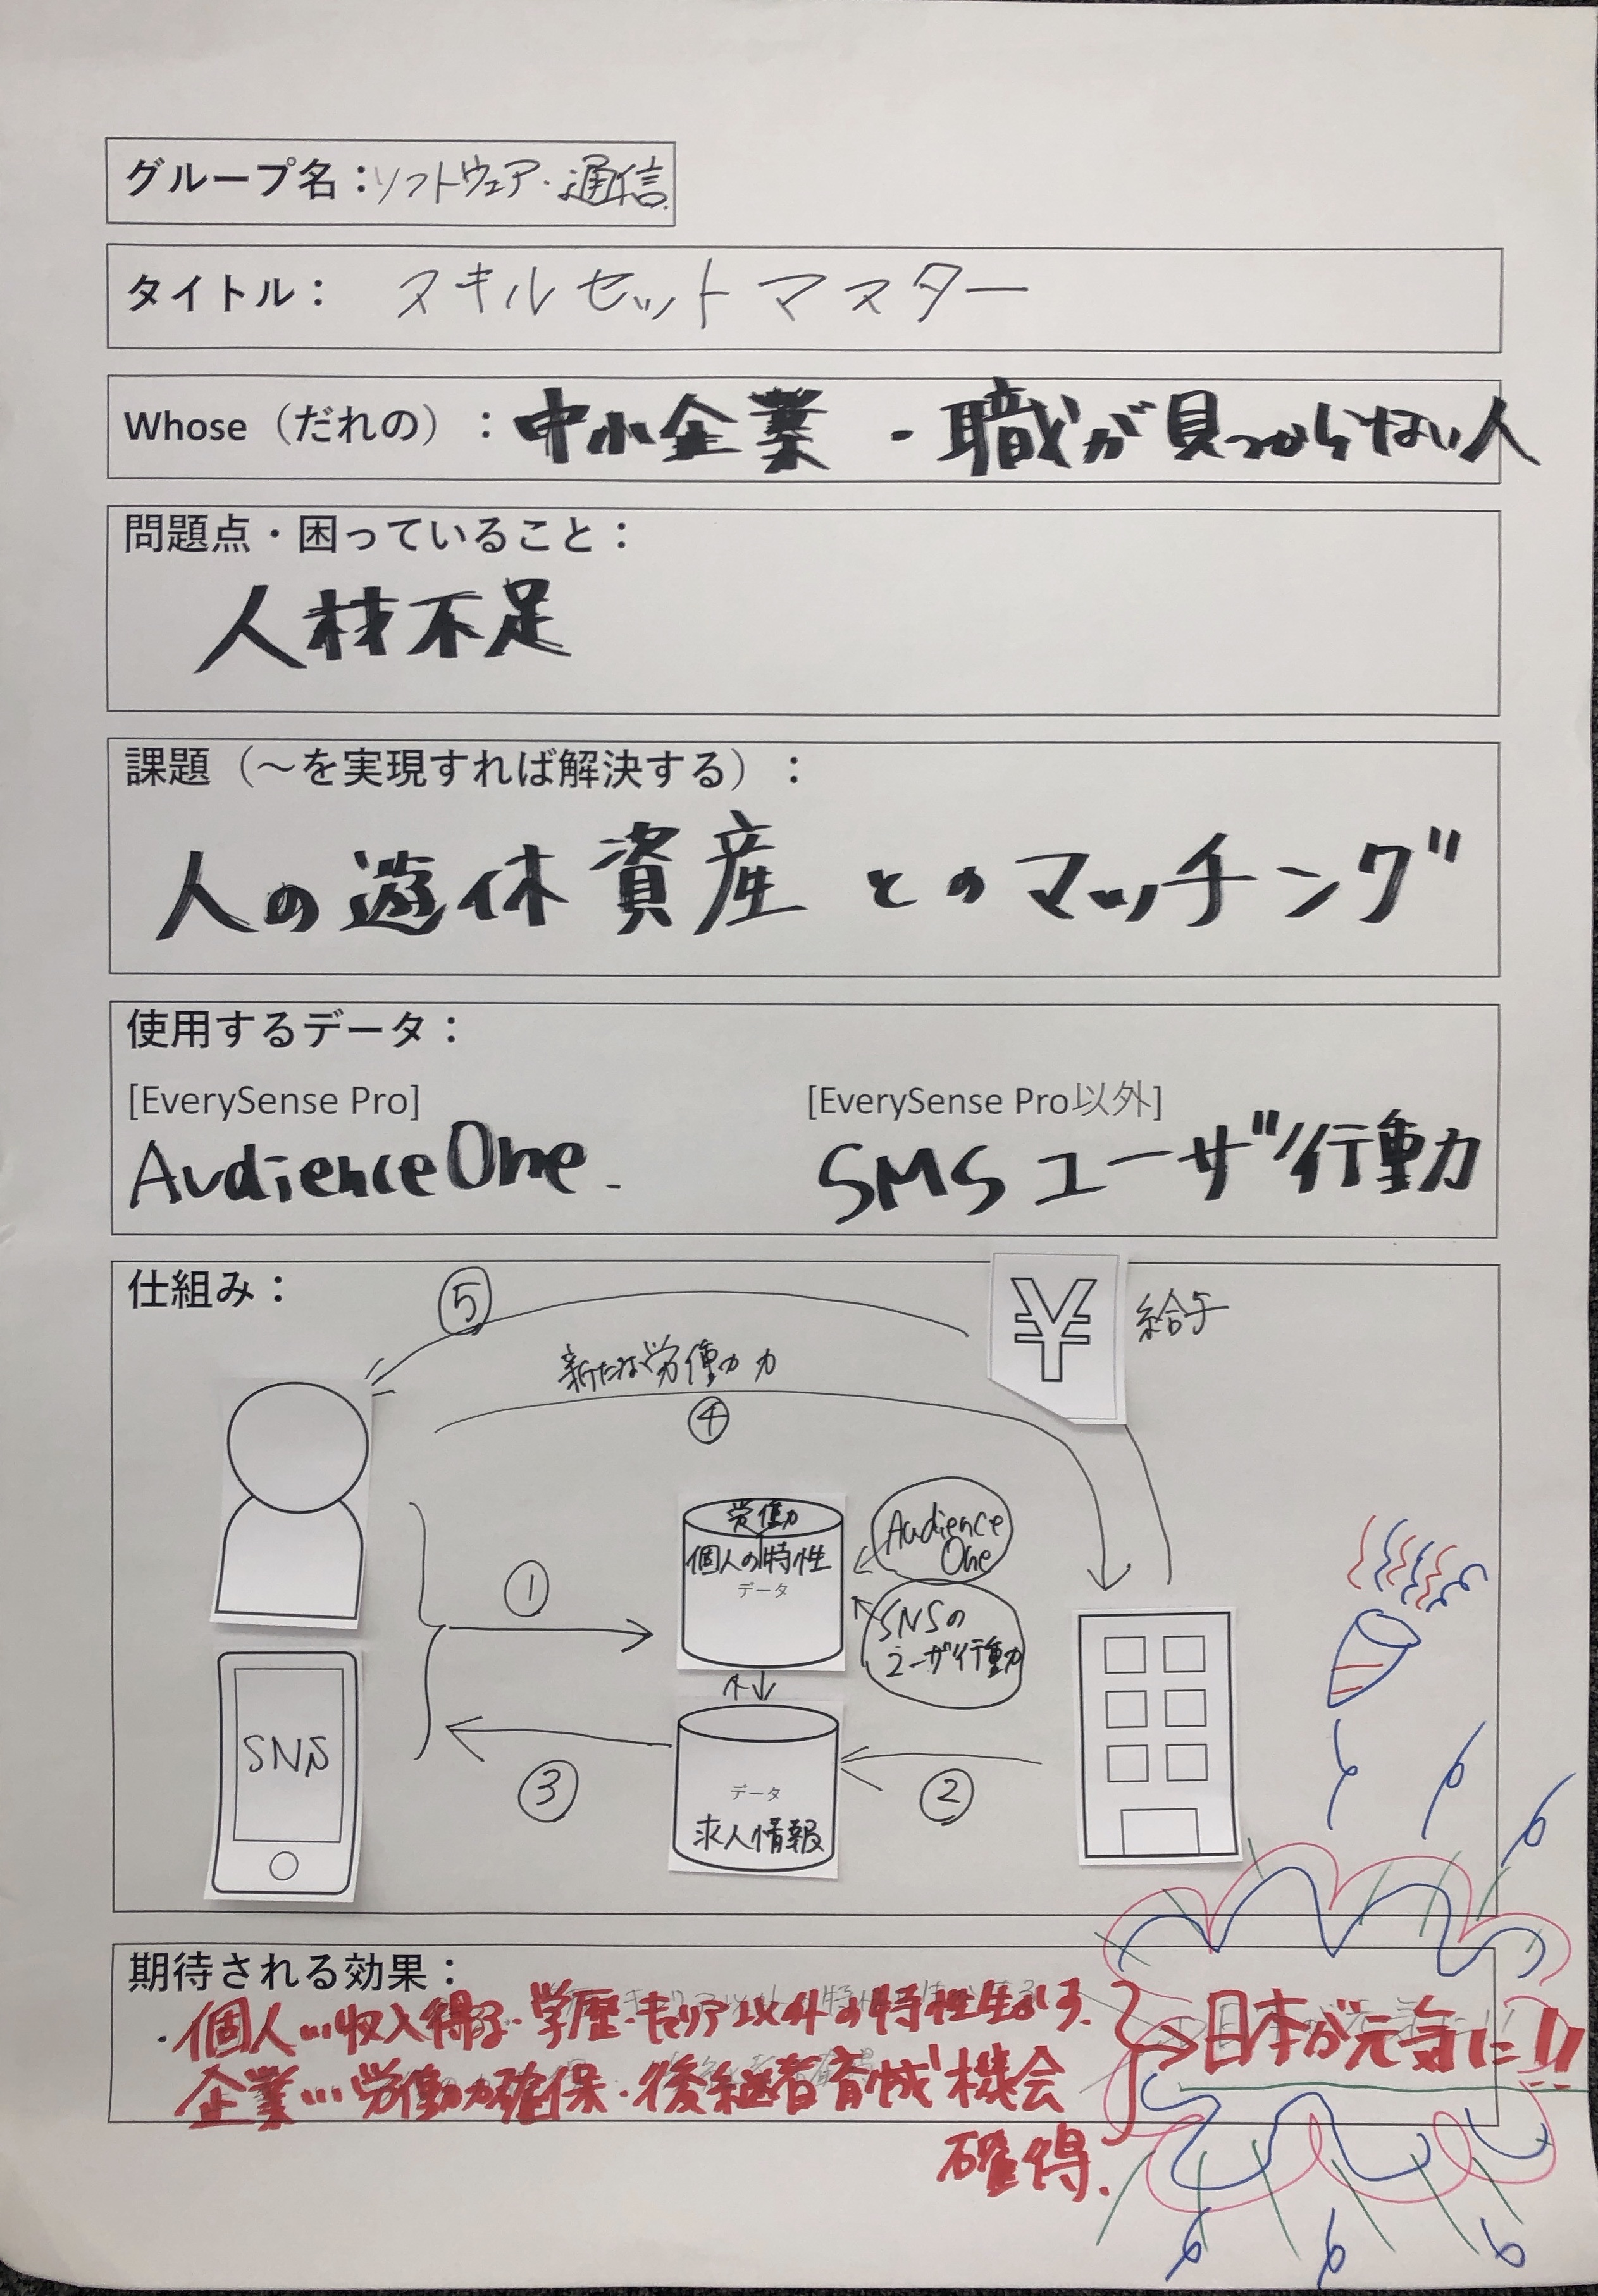 グループ名：ソフトウェア・通信
タイトル： スキルセットマスター
Whose（だれの）：中小企業 ・職が見つからない人
問題点・困っていること：
人材不足
課題（～を実現すれば解決する）：
人の遊休資産とのマッチング
使用するデータ：
[EverySense Pro]
AudienceOne.
[EverySense Pro以外]
SMSユーザ行動
仕組み：
⑤
¥
給与
新たな労働力
④
労働力
個人の特性
データ
Audience
One
SNSの
ユーザ行動
①
SNS
③
データ
求人情報
②
期待される効果：
・個人…収入得る・学歴・キャリア以外の特性生かす.
企業…労働力確保・後継者育成機会
確得.
⇒日本が元気に!!